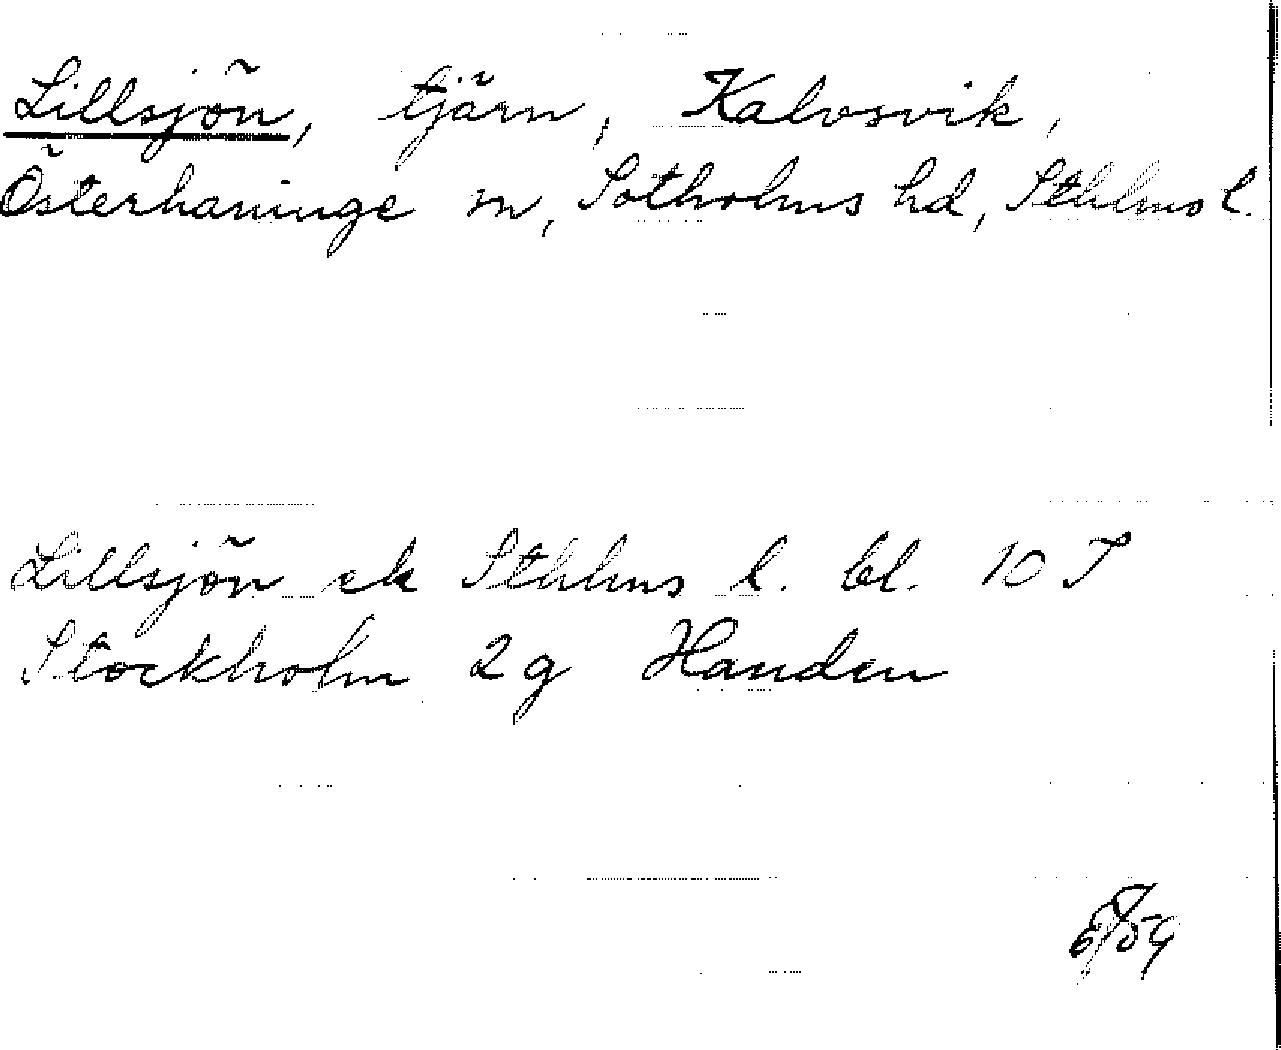 Lillsjön, tjärn, Kalvsvik,
Österhaninge sn, Sotholms hd, Sthlms l.
Lillsjön ek Sthlms l. bl. 10 I
Stockholm 2g Handen